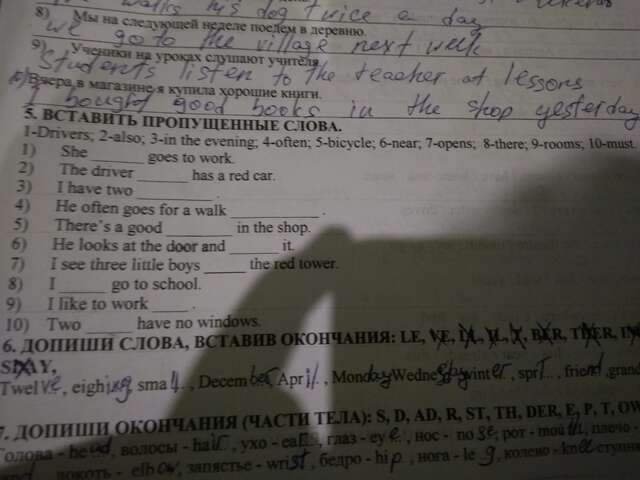 walks his dog twice a day
8) Мы на следующей неделе поедем в деревню.
We go to the village next welk
9) Ученики на уроках слушают учителя.
Students listen to the teacher at lessons
10) Вчера в магазине я купила хорошие книги.
I bought good books in the shop yesterday
5. ВСТАВИТЬ ПРОПУЩЕННЫЕ СЛОВА.
1-Drivers; 2-also; 3-in the evening; 4-often; 5-bicycle; 6-near; 7-opens; 8-there; 9-rooms; 10-must.
1) She ______ goes to work.
2) The driver ______ has a red car.
3) I have two __________ .
4) He often goes for a walk __________ .
5) There's a good ________ in the shop.
6) He looks at the door and ______ it.
7) I see three little boys _____ the red tower.
8) I _____ go to school.
9) I like to work ____ .
10) Two _____ have no windows.
6. ДОПИШИ СЛОВА, ВСТАВИВ ОКОНЧАНИЯ: LE, VE, IL, L, Y, BER, TBER,
DAY,
Twelve, eighing, small.. , December, April.. , Monday Wednesday winter , spri... , friend , grand
7. ДОПИШИ ОКОНЧАНИЯ (ЧАСТИ ТЕЛА): S, D, AD, R, ST, TH, DER, E, P, T, OW
Голова - head, волосы - hair, ухо - ear.., глаз - eye.., нос - nose, рот - mouth, плечо -
локоть - elbow, запястье - wrist, бедро - hip , нога - leg, колено - knee ступня